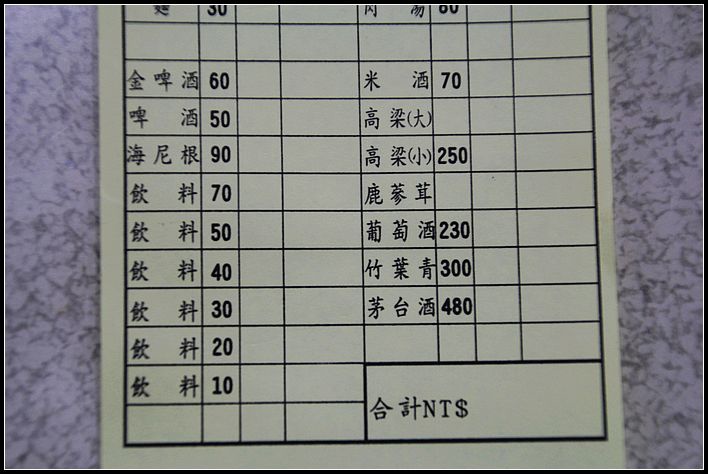 麵 30 肉 湯 60
金啤酒 60 米 酒 70
啤 酒 50 高梁(大)
海尼根 90 高梁(小) 250
飲 料 70 鹿蔘茸
飲 料 50 葡萄酒 230
飲 料 40 竹葉青 300
飲 料 30 茅台酒 480
飲 料 20
飲 料 10
合計NT$